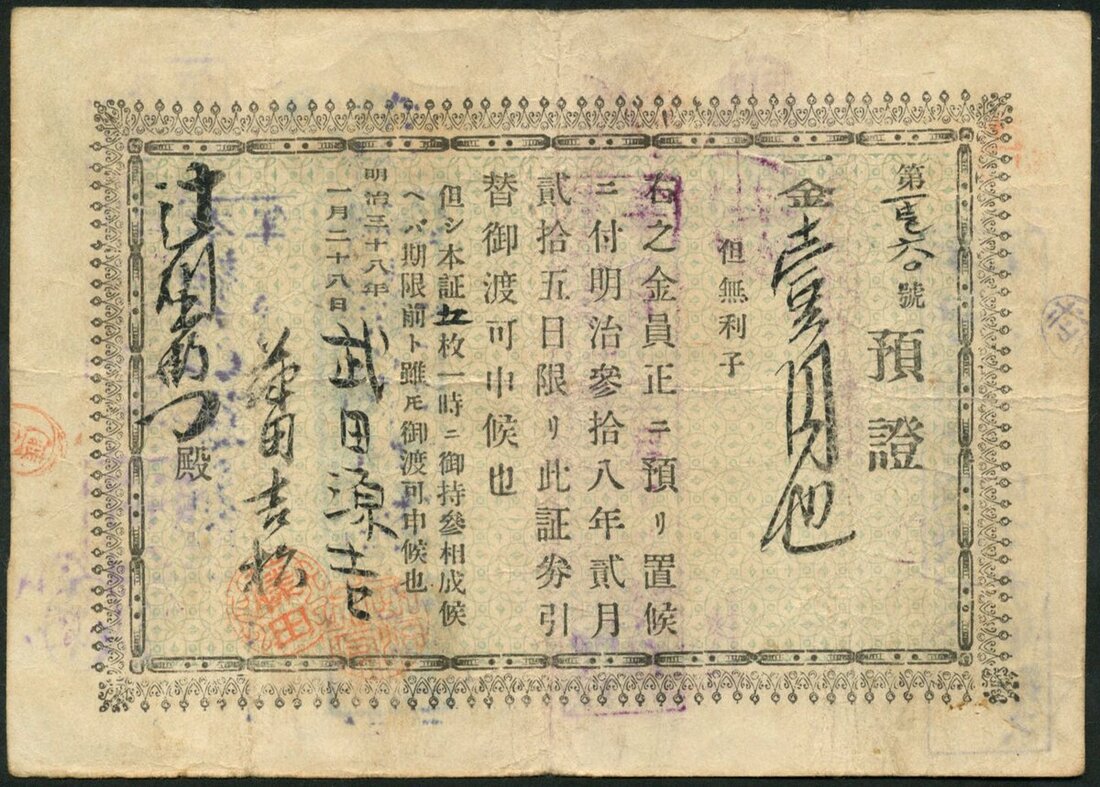 第壱百六号 預證
一金壹圓也
但無利子
右之金員正ニ預リ置候
ニ付明治參拾八年貳月
貳拾五日限リ此証劵引
替御渡可申候也
但シ本証五枚一時ニ御持參相成候
ヘバ期限前ト雖𪜈御渡可申候也
明治三十八年
一月二十八日
武田源吉
吉松
殿